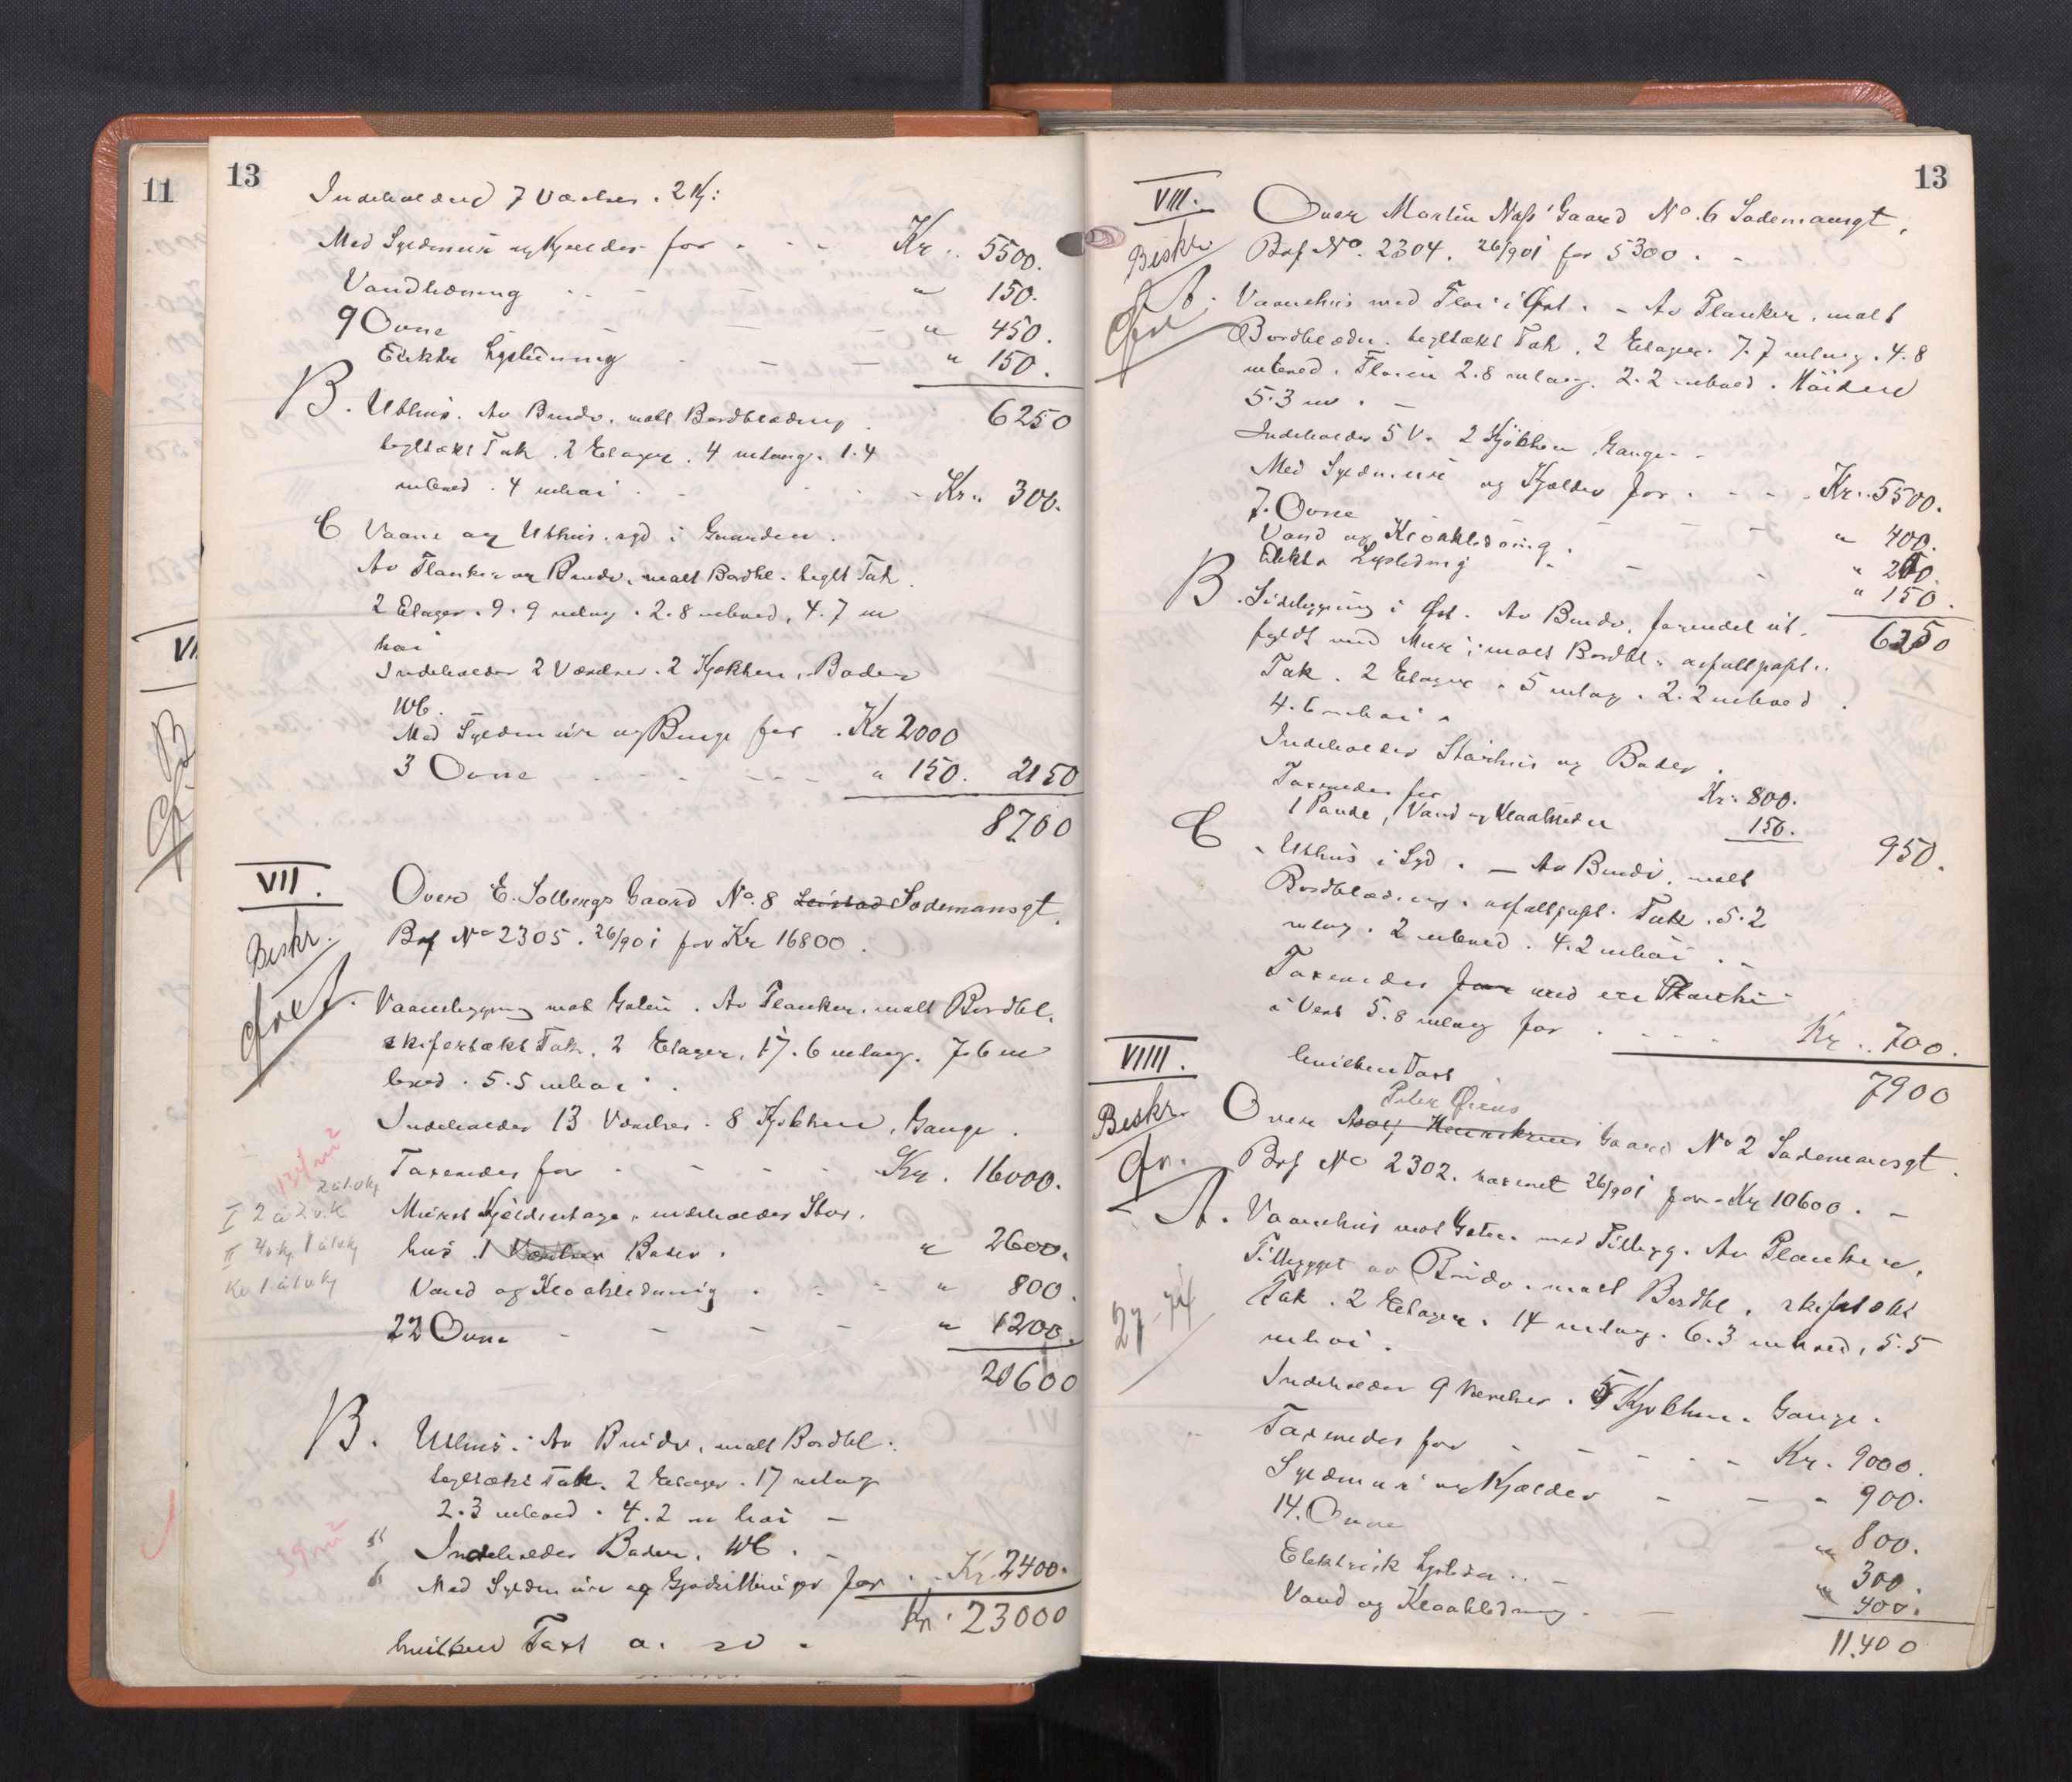 11
VI
B
13
Indeholder 7 Værelser . 2 Kj:
Med Syldmur og Kjælder for - - - Kr. 5500.
Vandledning - - - " 150.
9 Ovne - - - " 450.
Elektr Lysledning - - - " 150.
6250
B. Uthus. Av Bindv. malt Bordklædning
tegltækt Tak . 2 Etager . 4 m lang . 1.4
m bred . 4 m høi - - - Kr. 300.
C Vaane og Uthus. syd i Gaarden .
Av Planker og Bindv. malt Bordkl. teglt Tak .
2 Etager . 9.9 m lang . 2.8 m bred, 4.7 m
høi
Indeholder 2 Værelser . 2 Kjøkken, Boder
WC.
Med Syldmur og Bryge for . Kr 2000
3 Ovne - - - " 150. 2150
8700
VII.
Beskr.
Over E. Solbergs Gaard No. 8 Sodemansgt.
Brf No 2305 . 26/901 for Kr 16800 .
Vaanebygning mot Gaten . Av Planker, malt Bordkl.
skifertækt Tak . 2 Etager, 17.6 m lang . 7.6 m
bred . 5.5 m høi .
Indeholder 13 Værelser . 8 Kjøkken, Gange .
134 m2
Taxeredes for - - - Kr. 16000.
2 a 1 v kj
I 2 a 2 v. k
Muret Kjelderetage, indeholder Star-
II 4 v kj 1 a 1 v kj
hus . 1 Værelser Boder . " 2600.
Kv 1 a 1 v kj
Vand og Kloakledning . - - " 800.
22 Ovne - - - " 1200.
20600
B. Uthus . Av Bindv, malt Bordkl.
tegltækt Tak . 2 Etager . 17 m lang
2.3 m bred . 4.2 m høi -
39 m2
" Indeholder Boder, WC . -
" Med Syldmur og for . - Kr 2400.
Kr. 23000
hvilken Taxt a. -
13
VIII.
Beskr
Over Martin Næss' Gaard No. 6 Sodemansgt.
Brf No. 2304 . 26/901 for 5300 . -
A. Vaanehus med Fløi i Øst . - Av Planker, malt
Bordklædn. tegltækt Tak . 2 Etager . 7.7 m lang . 4.8
m bred . Fløien 2.8 m lang . 2.2 m bred . Høiden
5.3 m . -
Indeholder 5 V. 2 Kjøkken Gange - -
Med Syldmur og Kjælder for . - - Kr. 5500.
7. Ovne - - - " 400.
Vand og Kloakledning . - - " 200.
Elektr Lysledning . - - " 150.
6250
B. Sidebygning i Øst. Av Bindv, forendel ut-
fyldt med Mur; malt Bordkl. asfaltpapt.
Tak . 2 Etager . 5 m lang . 2.2 m bred .
4.6 m høi .
Indeholder Starhus og Boder .
Taxeredes for Kr. 800.
1 Pande, Vand og Kloakledn 150.
950.
C . Uthus i Syd . - Av Bindv, malt
Bordklædning . asfaltpapt. Tak . 5.2
m lang . 2 m bred . 4.2 m høi . -
Taxeredes for med en
i Vest 5.8 m lang for . - - - Kr. 700.
hvilken Taxt 7900
VIIII.
Beskr.
Peter
Over Gaard No 2 Sodemansgt.
Brf No 2302. taxeret 26/901 for - Kr 10600 . -
A. Vaanehus mot Gaten med Tilbygg. Av Planker,
Tilbygget av Bindv. malt Bordkl, skifertækt
27-74
Tak . 2 Etager . 14 m lang . 6.3 m bred, 5.5
m høi .
Indeholder 9 Værelser . 5 Kjøkken . Gange .
Taxeredes for - - - Kr. 9000.
Syldmur og Kjælder - - - 900.
14. Ovne " 800.
Elektrisk Lysledn .. - " 300.
Vand og Kloakledning . - " 400.
11.400